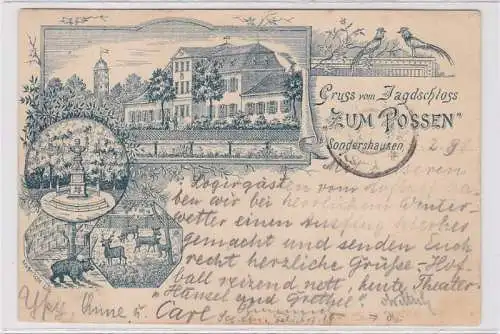 Gruss vom Jagdschloss
"ZUM POSSEN"
Sondershausen,
2. 98
Logirgästen vom
ben wir bei herrlichem Winter-
wetter einen Ausflug hierher
gemacht und senden Euch
recht herzliche Grüße. Hof-
ball reizend nett, heute Theater
"Hänsel und Grethel"
Anne u. Carl